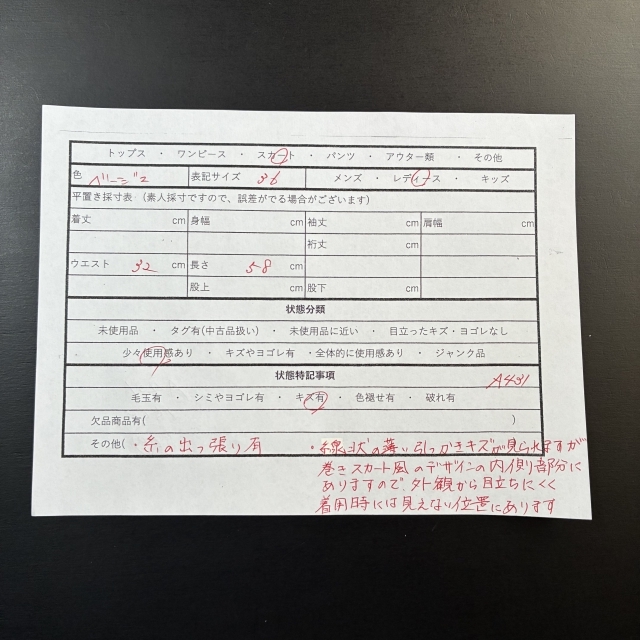 トップス ・ ワンピース ・ スカート ・ パンツ ・ アウター類 ・ その他
色 ベージュ 表記サイズ 36 メンズ ・ レディース ・ キッズ
平置き採寸表 (素人採寸ですので、誤差がでる場合がございます)
着丈 cm 身幅 cm 袖丈 cm 肩幅 cm
裄丈 cm
ウエスト 32 cm 長さ 58 cm
股上 cm 股下 cm
状態分類
未使用品 ・ タグ有(中古品扱い) ・ 未使用品に近い ・ 目立ったキズ・ヨゴレなし
少々使用感あり ・ キズやヨゴレ有 ・全体的に使用感あり ・ ジャンク品
状態特記事項 A431
毛玉有 ・ シミやヨゴレ有 ・ キズ有 ・ 色褪せ有 ・ 破れ有
欠品商品有( )
その他( ・糸の出っ張り有 ・線状の薄い引っかきキズが見られますが
巻きスカート風のデザインの内側部分に
ありますので外観から目立ちにくく
着用時には見えない位置にあります